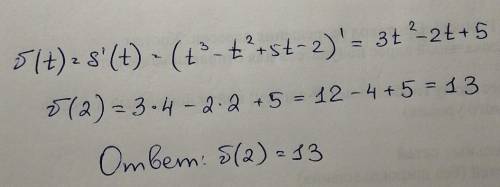 v(t) = S'(t) = (t³ - t² + 5t - 2)' = 3t² - 2t + 5
v(2) = 3·4 - 2·2 + 5 = 12 - 4 + 5 = 13
Ответ: v(2) = 13